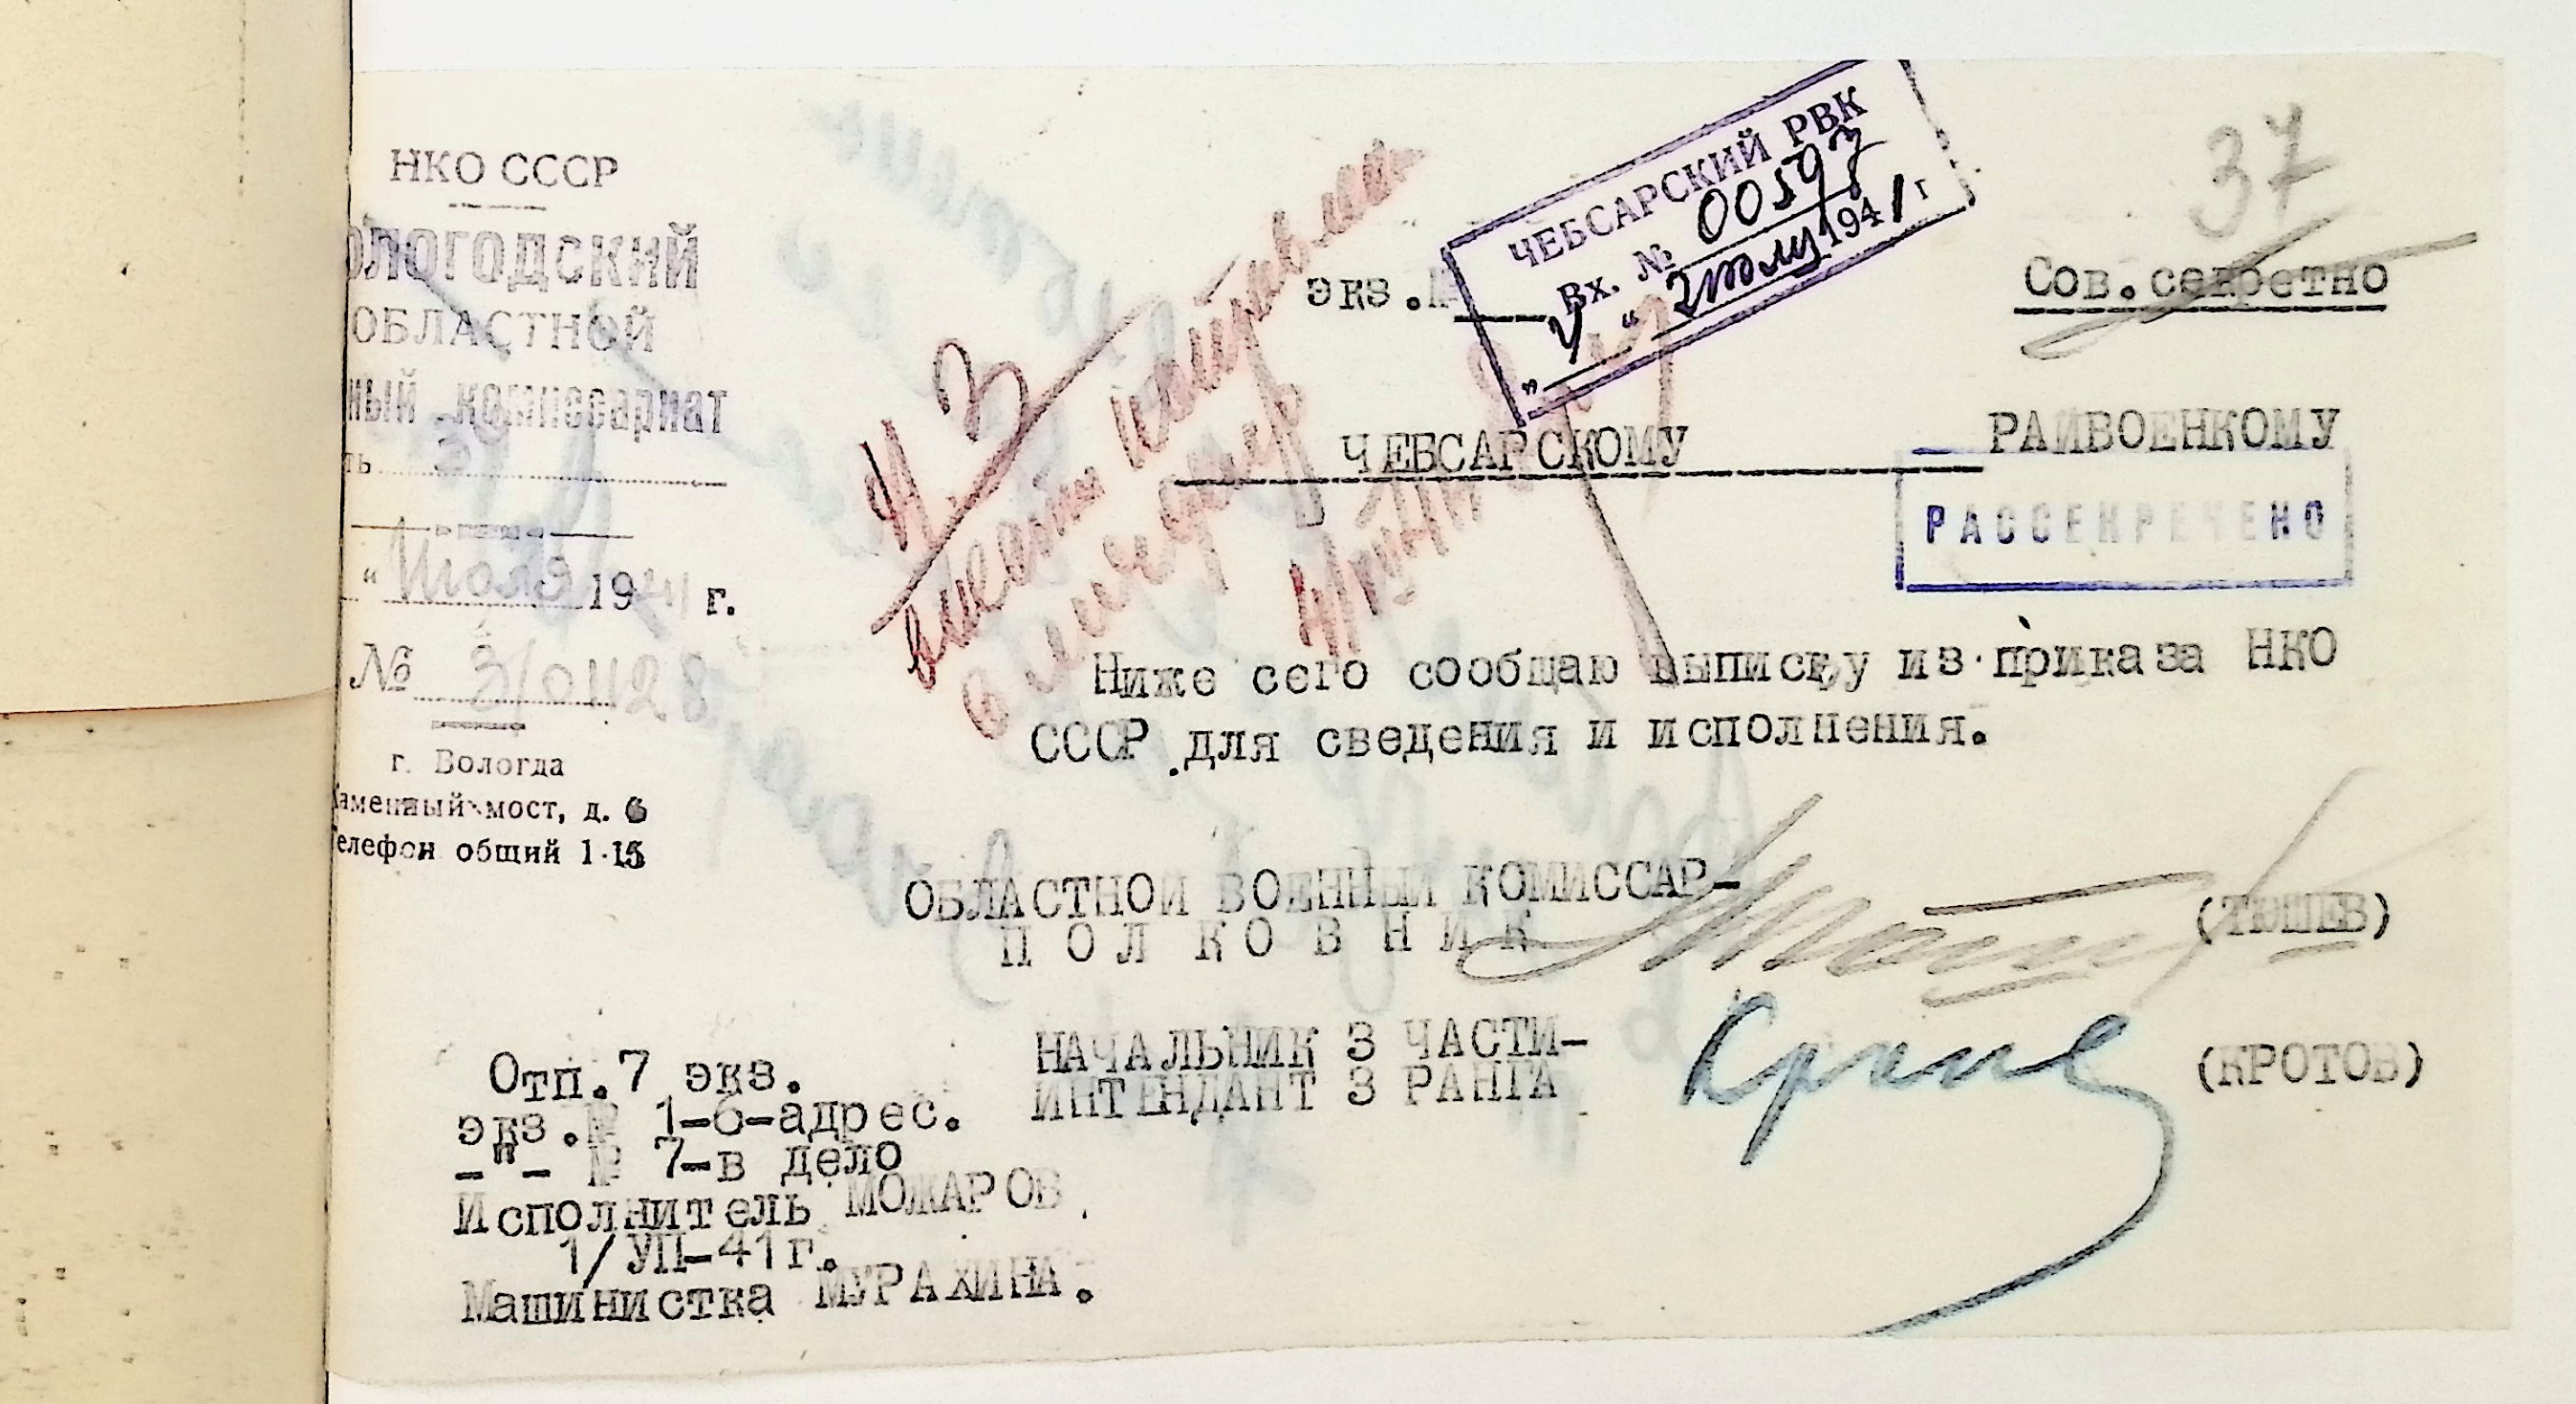 НКО СССР
ОЛОГОДСКИЙ
ОБЛАСТНОЙ
ный комиссариат
ть
" Июля 1941 г.
№ 3/01128
г. Вологда
Каменный мост, д. 6
Телефон общий 1-15
37
Сов.секретно
экз.№
ЧЕБСАРСКИЙ РВК
Вх. №
194 1 г
ЧЕБСАРСКОМУ РАЙВОЕНКОМУ
РАССЕКРЕЧЕНО
Ч 3
Ниже сего сообщаю выписку из приказа НКО
СССР для сведения и исполнения.
ОБЛАСТНОЙ ВОЕННЫЙ КОМИССАР-
ПОЛКОВНИК
(ТЮШЕВ)
НАЧАЛЬНИК 3 ЧАСТИ-
ИНТЕНДАНТ 3 РАНГА
(КРОТОВ)
Отп.7 экз.
экз.№ 1-6-адрес.
-"- № 7-в дело
Исполнитель МОЖАРОВ.
1/УП-41г.
Машинистка МУРАХИНА.